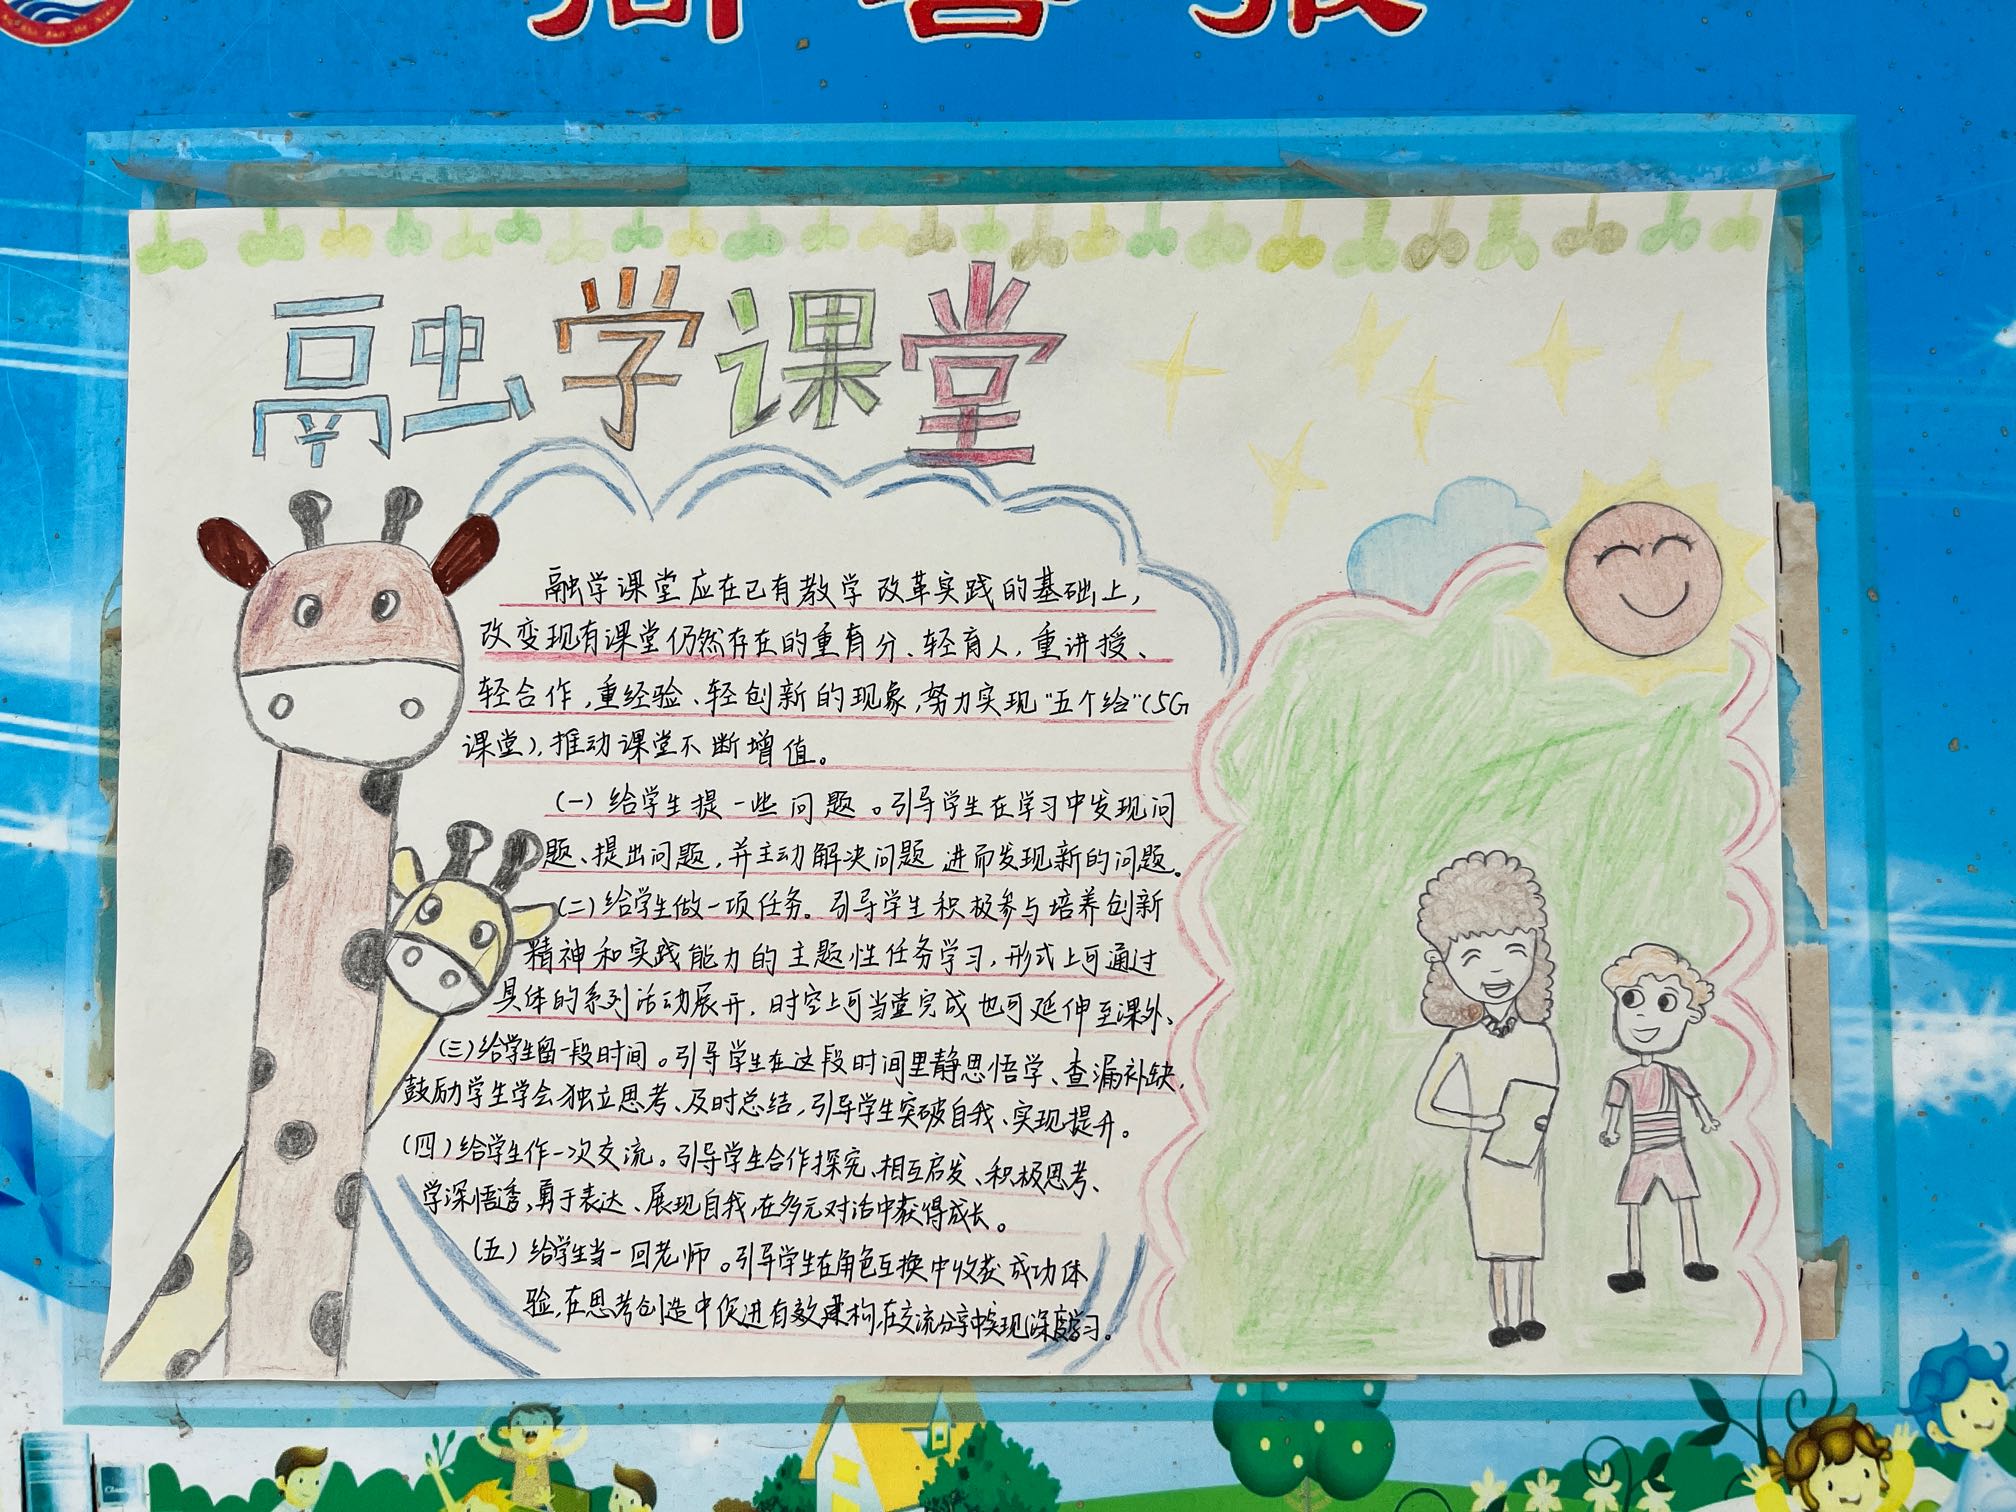 融学课堂
融学课堂应在已有教学改革实践的基础上,
改变现有课堂仍然存在的重育分、轻育人,重讲授、
轻合作,重经验、轻创新的现象,努力实现“五个给”(5G
课堂),推动课堂不断增值。
(一)给学生提一些问题。引导学生在学习中发现问
题、提出问题,并主动解决问题 进而发现新的问题。
(二)给学生做一项任务。引导学生积极参与培养创新
精神和实践能力的主题性任务学习,形式上可通过
具体的系列活动展开,时空上可当堂完成也可延伸至课外、
(三)给学生留一段时间。引导学生在这段时间里静思悟学、查漏补缺,
鼓励学生学会独立思考、及时总结,引导学生突破自我、实现提升。
(四)给学生作一次交流。引导学生合作探究、相互启发、积极思考、
学深悟透,勇于表达、展现自我,在多元对话中获得成长。
(五)给学生当一回老师。引导学生在角色互换中收获成功体
验,在思考创造中促进有效建构,在交流分享中实现深度学习。